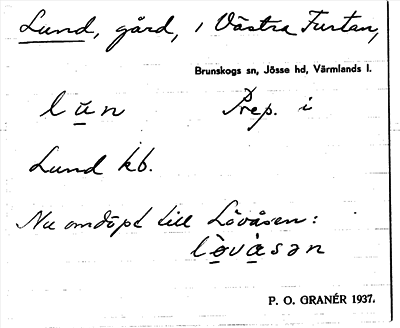 Lund, gård, i Västra Furtan,
Brunskogs sn, Jösse hd, Värmlands l.
lun Prep. i
Lund kb.
Nu omdöpt till Lövåsen:
lövåsən
P. O. GRANÉR 1937.